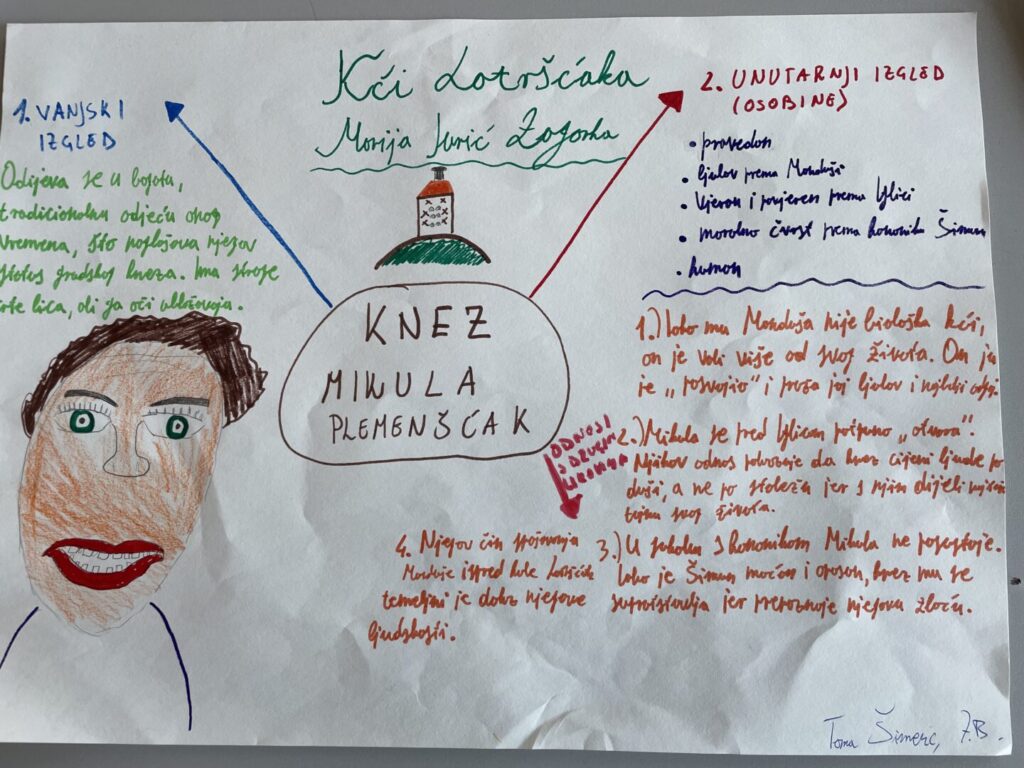 Kći Lotršćaka
Marija Jurić Zagorka
1. VANJSKI
IZGLED
Odijeva se u bogatu,
tradicionalnu odjeću onog
vremena, što naglašava njegov
status gradskog kneza. Ima stroge
crte lica, ali ga oči ublažavaju.
KNEZ
MIKULA
PLEMENŠĆAK
2. UNUTARNJI IZGLED
(OSOBINE)
• pravedan
• ljubav prema Manduši
• Vjeran i povjeren prema Ljilici
• moralno čvrst prema kanoniku Šimun
• human
ODNOSI
S DRUGIM
LIKOVIMA
1.) Iako mu Manduša nije biološka kći,
on je voli više od svog života. On ju
je „posvojio" i pruža joj ljubav i najbolji odgoj.
2.) Mikula se pred Ljilicom potpuno „otvara".
Njihov odnos pokazuje da knez cijeni ljude po
duši, a ne po staležu jer s njim dijeli najveću
tajnu svog života.
3.) U sukobu s kanonikom Mikula ne popušta.
Iako je Šimun moćan i opasan, knez mu se
suprotstavlja jer prepoznaje njegovu zloću.
4. Njegov čin spašavanja
Manduše ispred kule Lotršćak
temeljni je dokaz njegove
ljudskosti.
Toma Šimerc, 7.B.